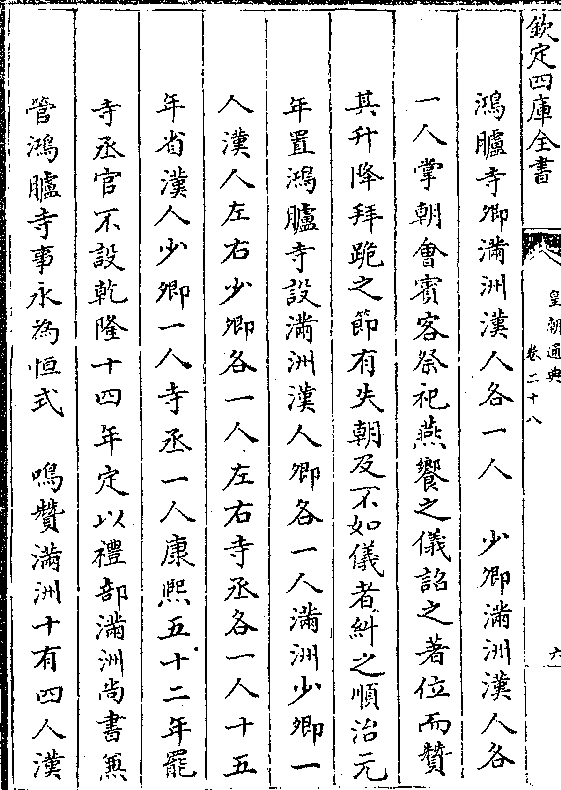 欽定四庫全書
皇朝通典
卷二十八
六
鴻臚寺卿滿洲漢人各一人　少卿滿洲漢人各
一人掌朝會賓客祭祀燕饗之儀詔之著位而贊
其升降拜跪之節有失朝及不如儀者糾之順治元
年置鴻臚寺設滿洲漢人卿各一人滿洲少卿一
人漢人左右少卿各一人左右寺丞各一人十五
年省漢人少卿一人寺丞一人康熙五十二年罷
寺丞官不設乾隆十四年定以禮部滿洲尚書兼
管鴻臚寺事永為恒式　鳴贊滿洲十有四人漢